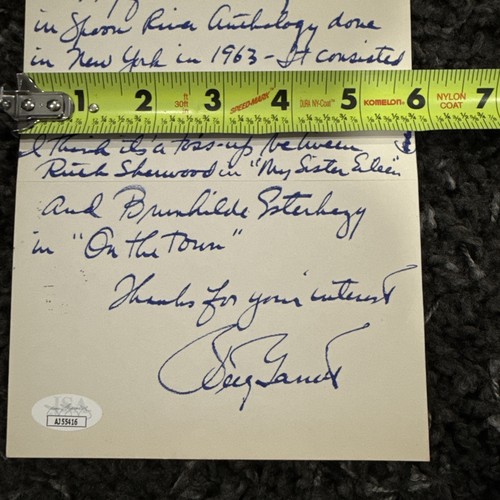 in Spoon River Anthology done
in New York in 1963 - It consisted
1 2 3 4 5 6 7
ft
30ft
SPEED-MARK™
DURA NY-Coat™
KOMELON®
NYLON COAT
I think it's a toss-up between
Ruth Sherwood in "My Sister Eileen"
and Brunhilde Esterhazy
in "On the Town"
Thanks for your interest
Betty Garrett
JSA
AJ55416